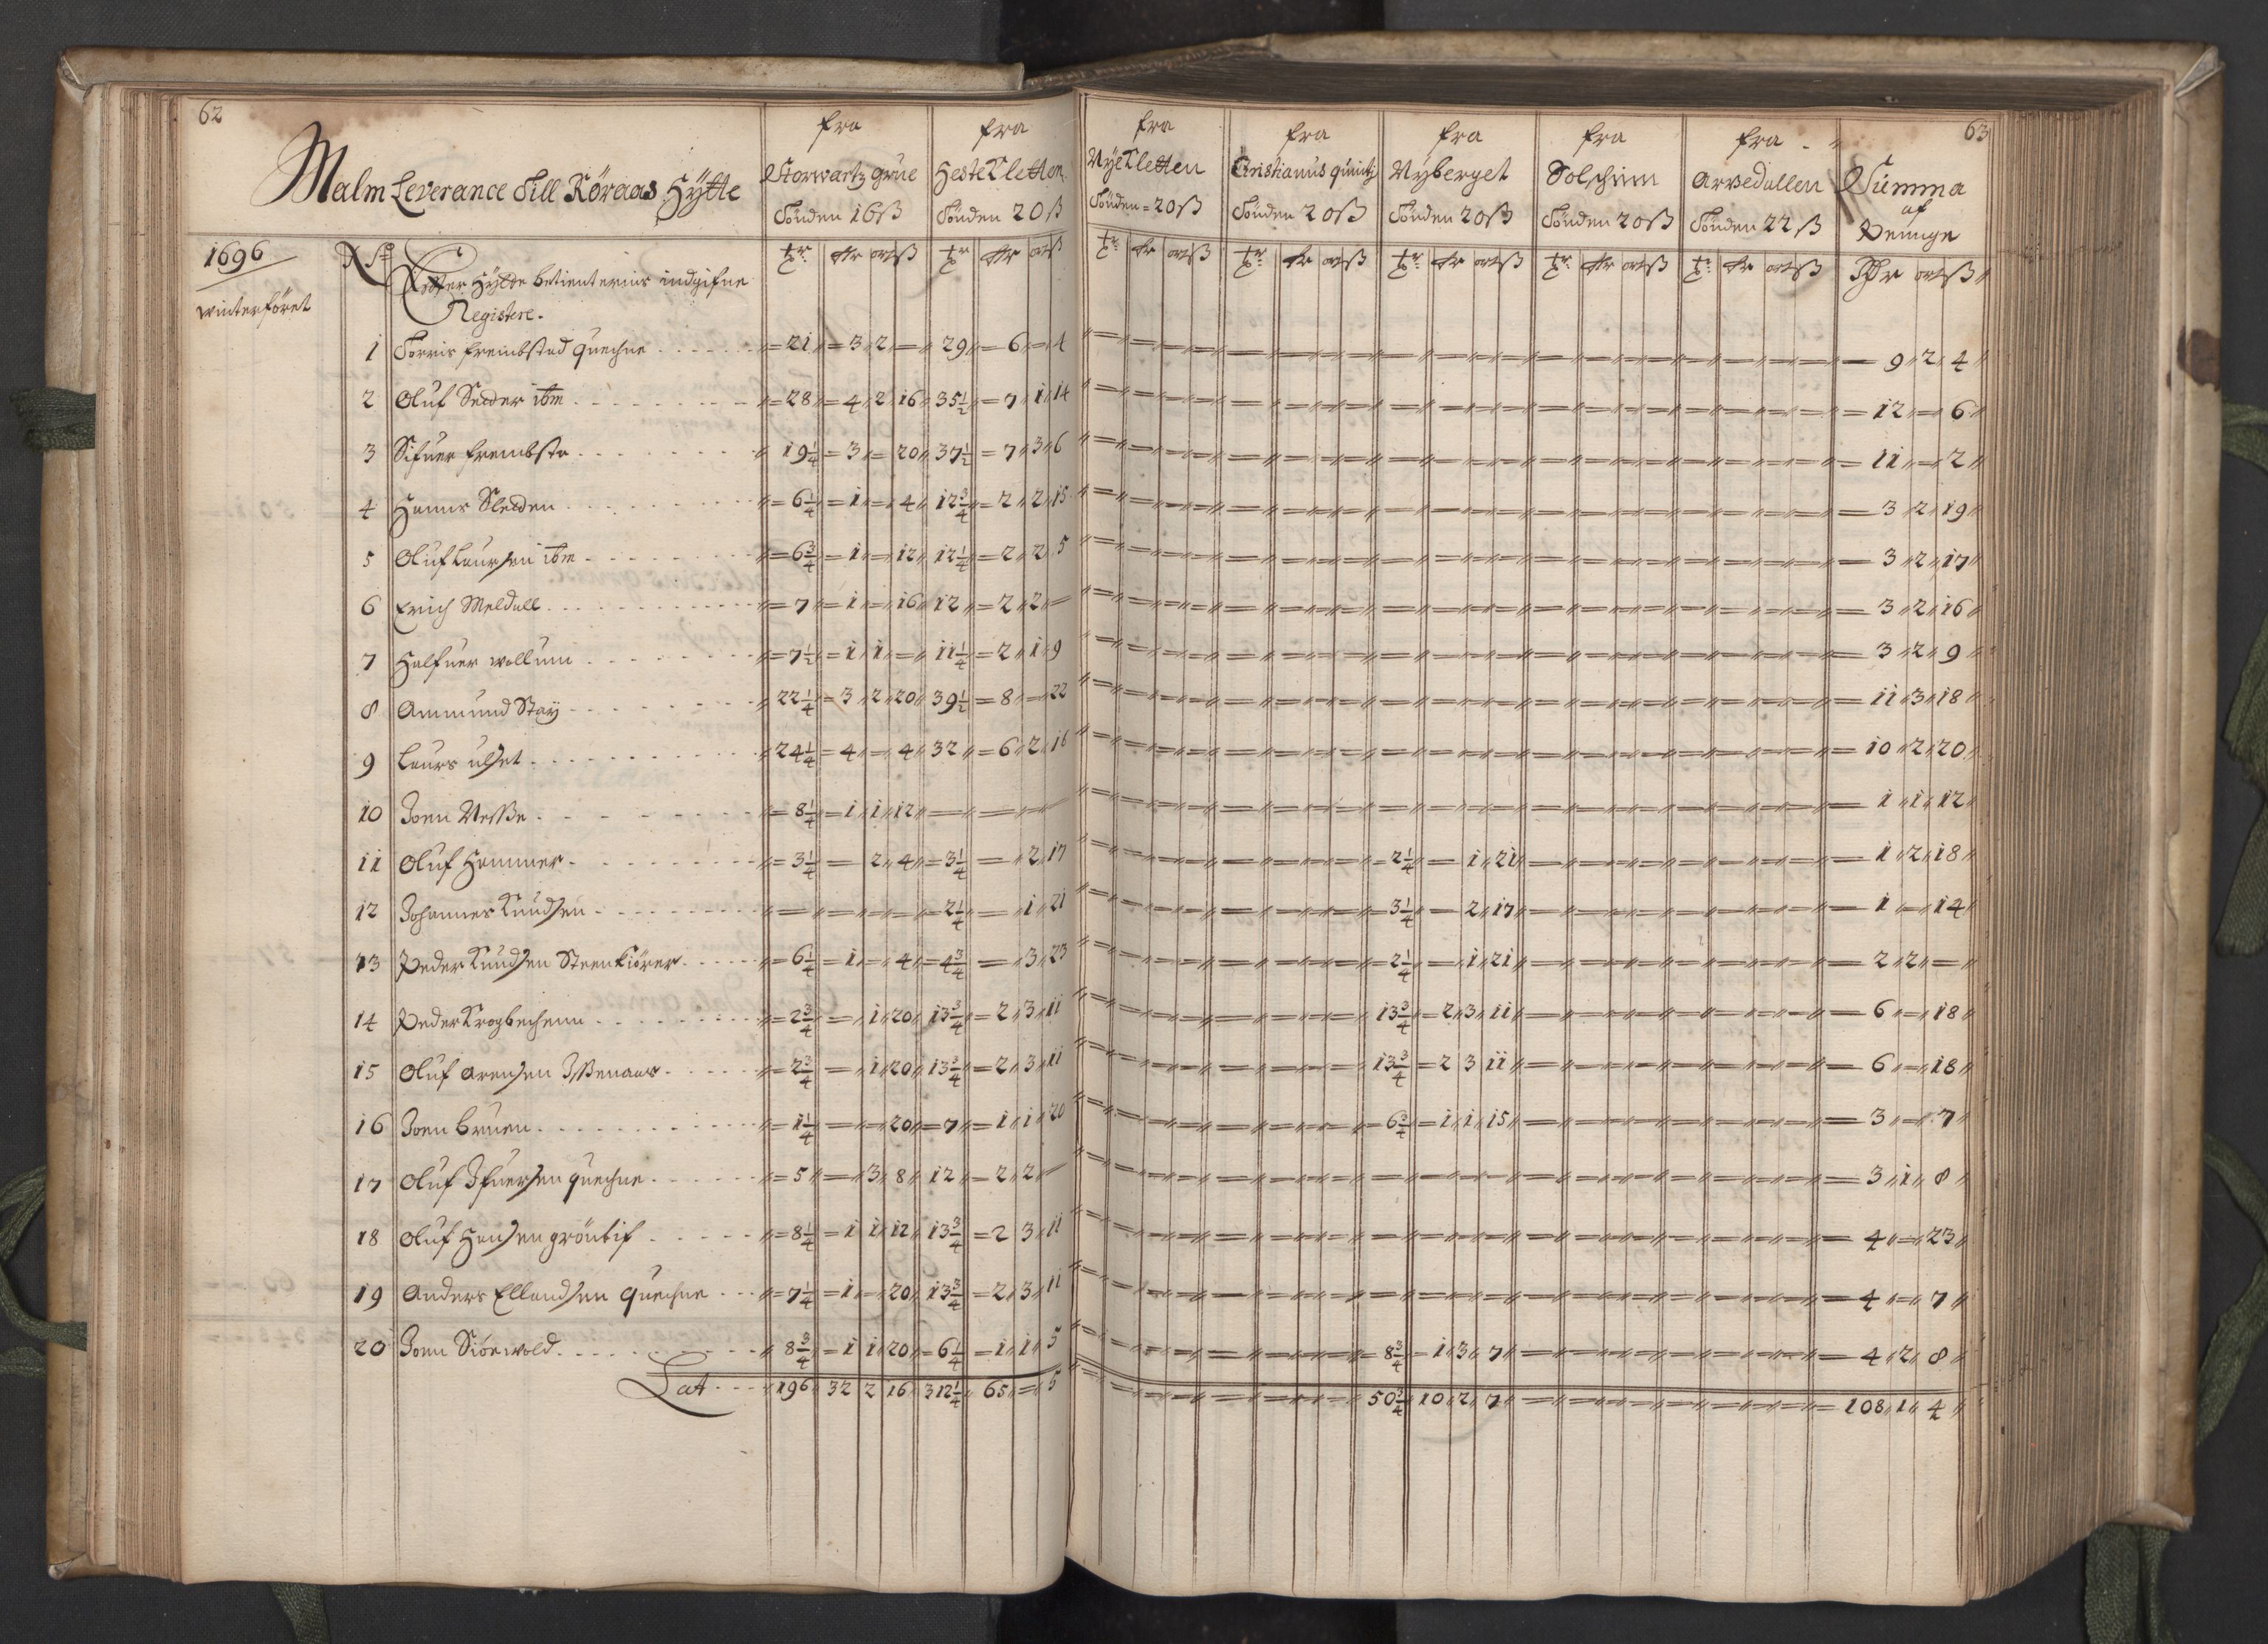 62
Malm Leverance Till Röraas Hÿtte
fra Storwartz grue Tönden 16 ß
fra HesteKletten Tönden 20 ß
fra NÿeKletten Tönden = 20 ß
fra Cristianus quinti Tönden 20 ß
fra Nÿberget Tönden 20 ß
fra Solschiin Tönden 20 ß
fra Arvedallen Tönden 22 ß
Summa af Peninge
63
1696
winterföret
No
Efter Hÿtte betienternis indgifne
Registere.
tr. ort ß tr. ort ß tr. ort ß tr. ort ß tr. ort ß tr. ort ß tr. ort ß Rdr ort ß
1 Torris frembstad quechne 21 3 2 — 29 6 — 4 — 9 2 4
2 Oluf ibm 28 4 2 16 35½ 7 1 14 — 12 — 6
3 Sifuer frembsta 19¼ 3 — 20 37½ 7 3 6 — 11 — 2
4 Hanns Sletten 6¼ 1 — 4 12¾ 2 2 15 — 3 2 19
5 Oluf Laursen ibm 6¾ 1 — 12 12¼ 2 2 5 — 3 2 17
6 Erich Meldall 7 1 — 16 12 2 2 — — 3 2 16
7 Halfuer wollum 7½ 1 1 — 11¼ 2 1 9 — 3 2 9
8 Ammund Stay 22¼ 3 2 20 39½ 8 — 22 — 11 3 18
9 Laurs ulset 24¼ 4 — 4 32 6 2 16 — 10 2 20
10 Joen Nesse 8¼ 1 1 12 — — — — — 1 1 12
11 Oluf Hammer 3¼ — 2 4 3¼ — 2 17 — 2¼ — 1 21 — 1 2 18
12 Johannes Knudsen — — — — 2¼ — 1 21 — 3¼ — 2 17 — 1 — 14
13 Peder Knudsen Steenkiörer 6¼ 1 — 4 4¾ — 3 23 — 2¼ — 1 21 — 2 2 —
14 Peder Krogbechenn 2¾ — 1 20 13¾ 2 3 11 — 13¾ 2 3 11 — 6 — 18
15 Oluf Arensen 2¾ — 1 20 13¾ 2 3 11 — 13¾ 2 3 11 — 6 — 18
16 Joen bruen 1¼ — — 20 7 1 1 20 — 6¾ 1 1 15 — 3 — 7
17 Oluf Ifuersen quechne 5 — 3 8 12 2 2 — — 3 1 8
18 Oluf Hansen gröutif 8¼ 1 1 12 13¾ 2 3 11 — 4 — 23
19 Anders Ellandsen quechne 7¼ 1 — 20 13¾ 2 3 11 — 4 — 7
20 Joen Siöewold 8¾ 1 1 20 6¼ 1 1 5 — 8¾ 1 3 7 — 4 2 8
Lat 196 32 2 16 312¼ 65 — 5 — 50¾ 10 2 7 — 108 1 4